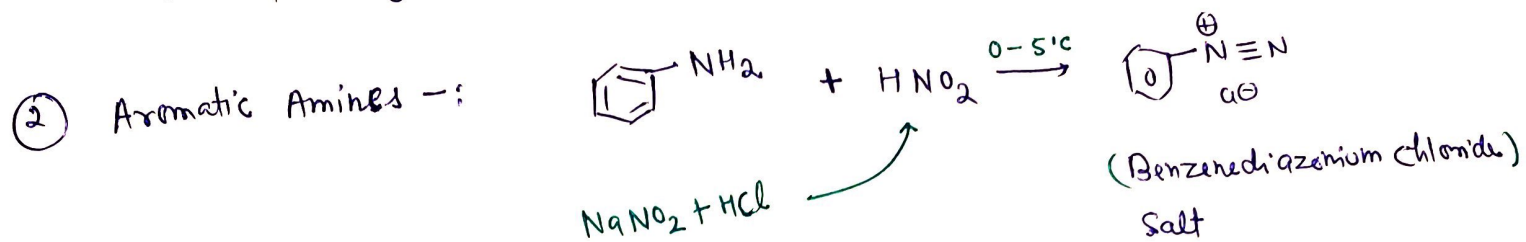 ② Aromatic Amines -: NH2 + HNO2 0-5°C ⊕ N≡N
Cl⊖
NaNO2 + HCl
(Benzenediazonium chloride)
Salt